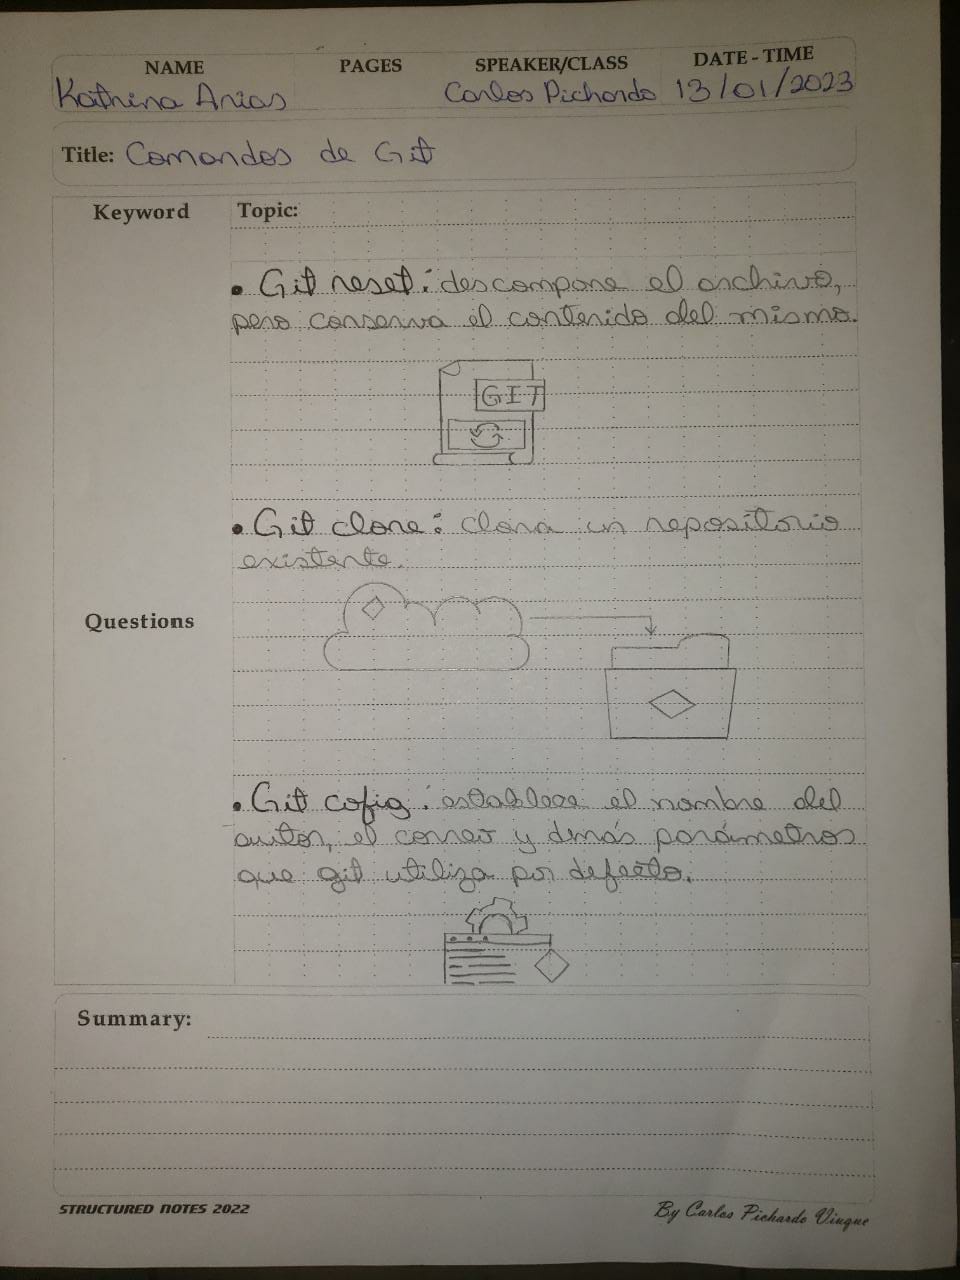 NAME PAGES SPEAKER/CLASS DATE - TIME
Katrina Arias Carlos Pichardo 13/01/2023
Title: Comandos de Git
Keyword Topic:
• Git reset: descompone el archivo,
pero conserva el contenido del mismo.
GIT
• Git clone: clona un repositorio
existente.
Questions
• Git cofig: establece el nombre del
autor, el correo y demás parámetros
que git utiliza por defecto.
Summary:
STRUCTURED NOTES 2022 By Carlos Pichardo Viuque